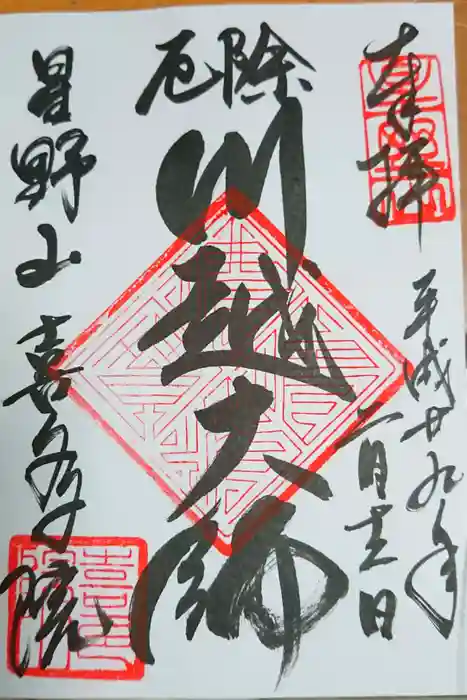 奉拝
平成廿九年
二月十三日
厄除
川越大師
星野山
喜多院